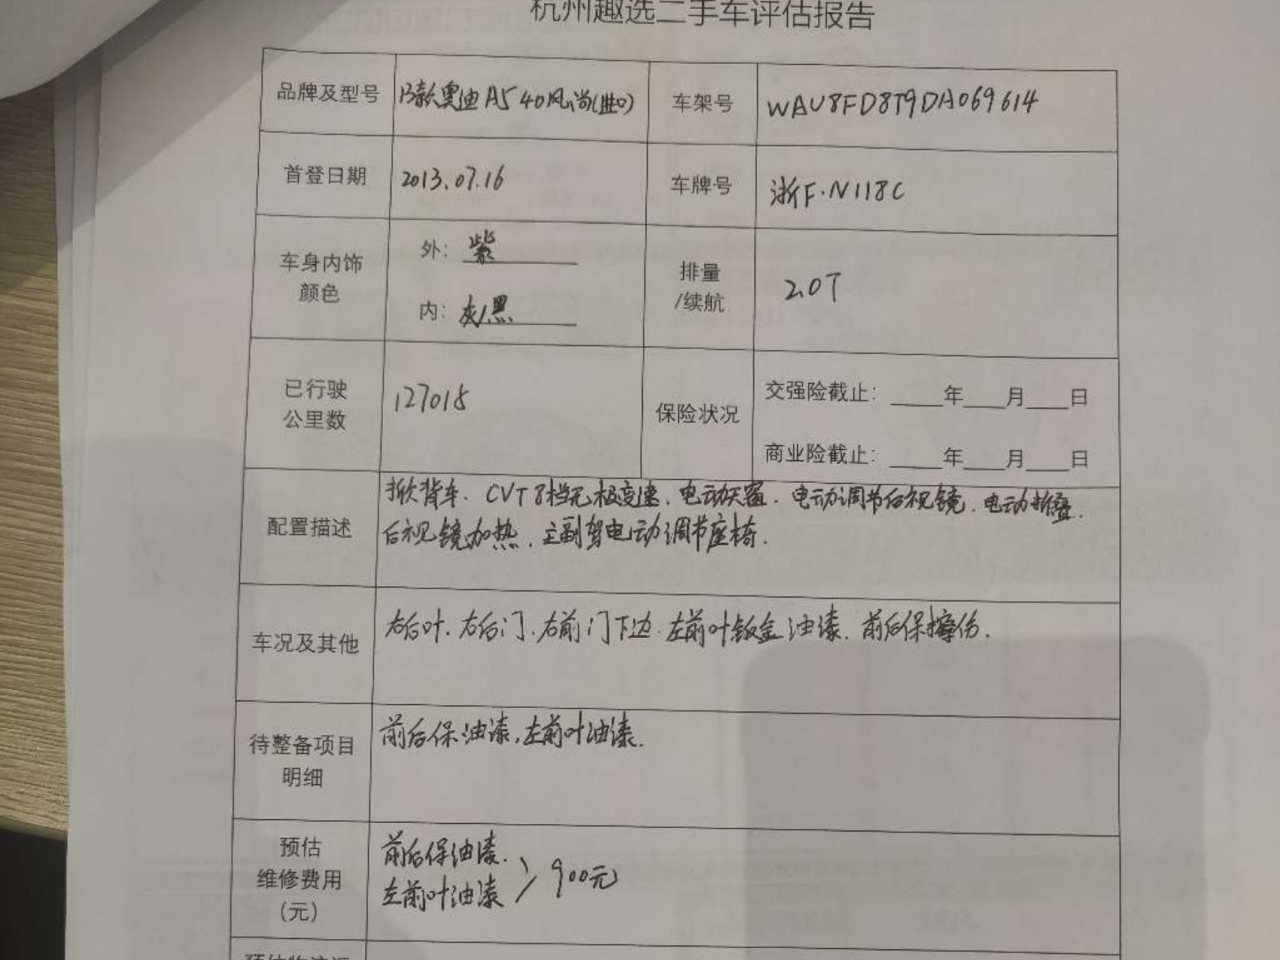 杭州趣选二手车评估报告
品牌及型号 13款奥迪A5 40风尚(进口) 车架号 WAU8FD8T9DA069614
首登日期 2013.07.16 车牌号 浙F·N118C
车身内饰
颜色
外: 紫
内: 灰/黑
排量
/续航
2.0T
已行驶
公里数
127015
保险状况
交强险截止: ____年___月___日
商业险截止: ____年___月___日
配置描述
掀背车、CVT8档无极变速、电动天窗、电动调节后视镜、电动折叠、
后视镜加热、主副驾电动调节座椅.
车况及其他
右后叶、右后门、右前门下边、左前叶钣金油漆、前后保擦伤.
待整备项目
明细
前后保油漆,左前叶油漆.
预估
维修费用
(元)
前后保油漆.
左前叶油漆
900元